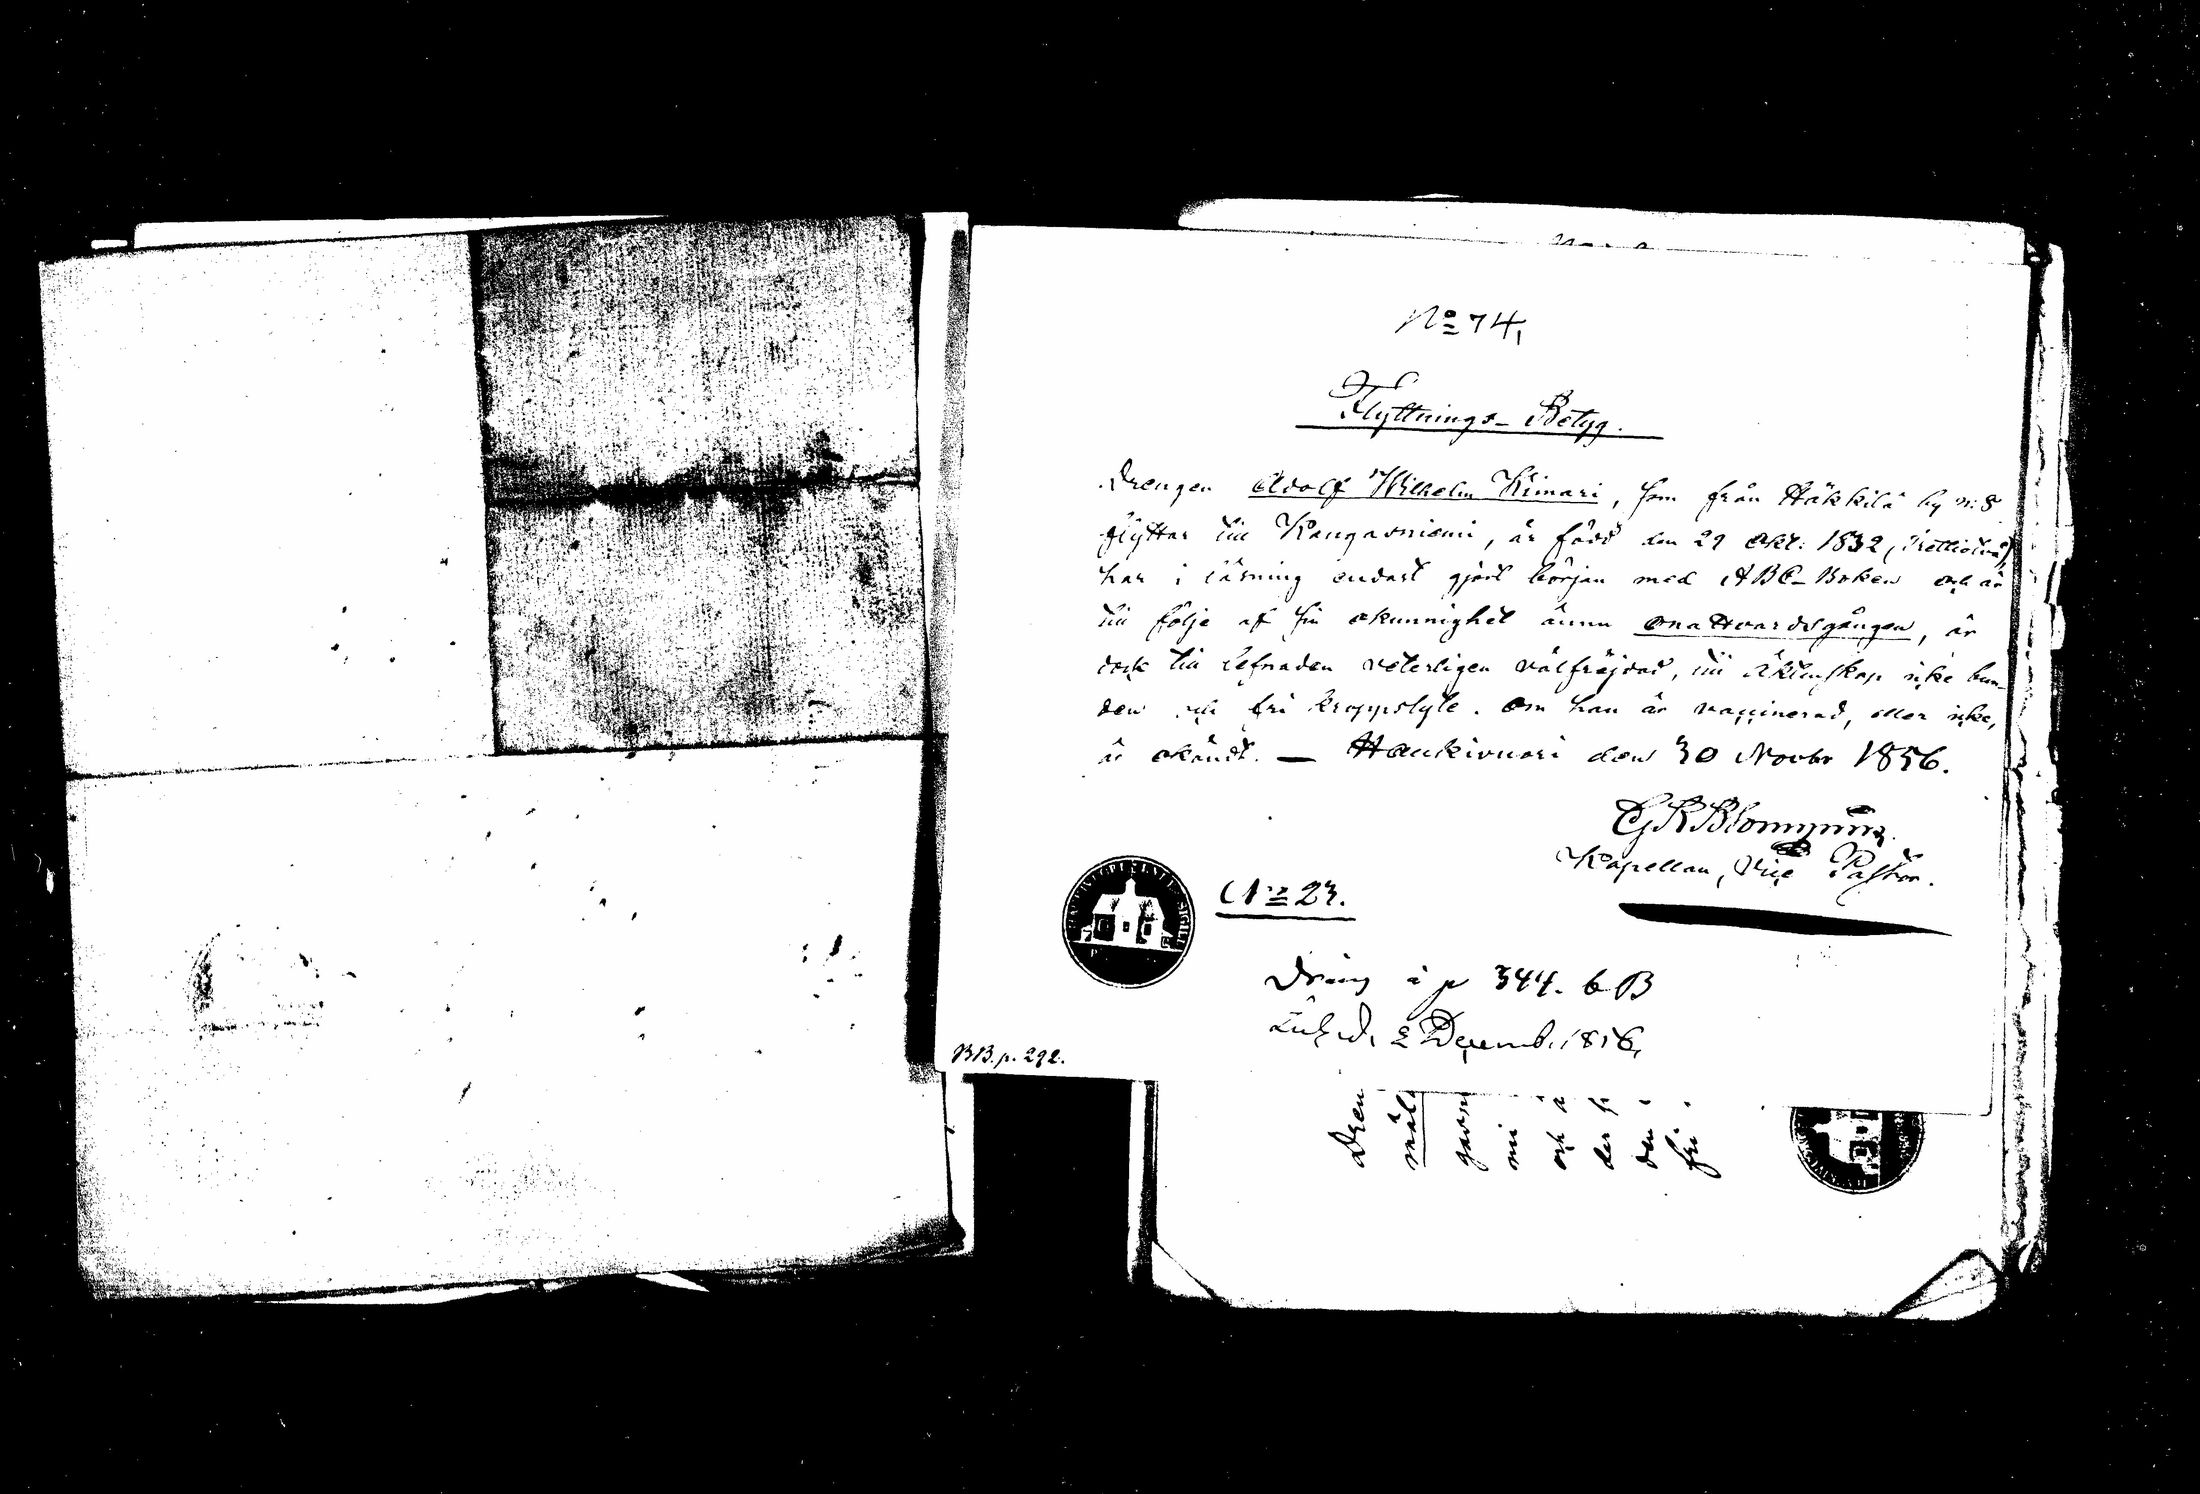 No 74,
Flyttnings-Betyg.
Drengen Adolf Wilhelm Kimari, som från Häkkilä by n:8
flyttar till Kangasniemi, är född den 29 Okt: 1832 (trettiotvå),
har i läsning endast gjort början med ABC-Boken och är
till följe af sin okunnighet ännu onattvardsgången, är
dock till lefnaden veterligen välfräjdad, till äktenskap icke bun-
den och fri kroppslyte. Om han är vaccinerad, eller icke,
är okändt. — Haukivuori den 30 Novbr 1856.
Kapellan, Vice Pastor.
No 23.
Dräng à p 344. b B
d. 2 Decemb. 1856,
BB. p. 292.
Dren
gasni
mi
och a
der
den
fri